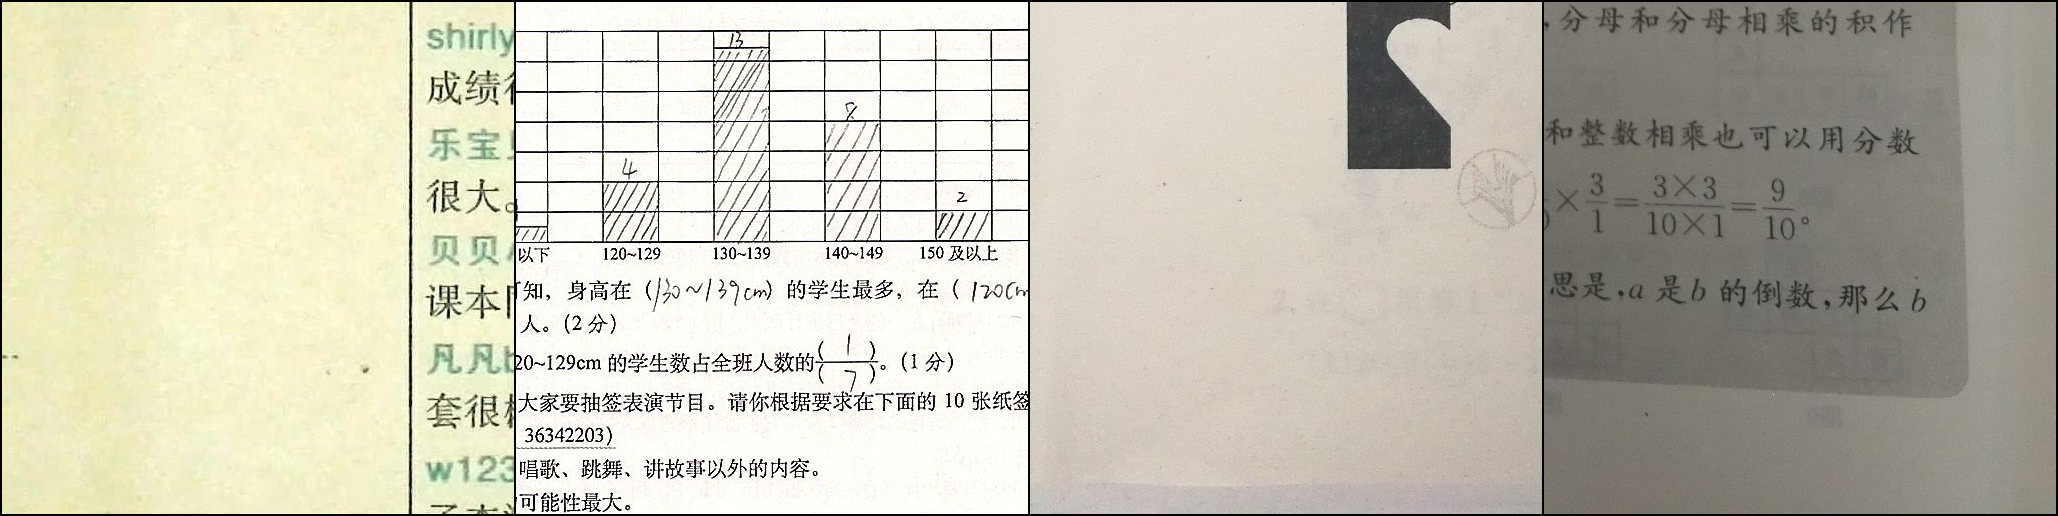 shirly
成绩
乐宝
很大。
贝贝
课本
凡凡
套很
w123
13
8
4
2
以下 120~129 130~139 140~149 150及以上
知，身高在（130~139cm）的学生最多，在（120cm
人。(2分)
20~129cm的学生数占全班人数的(1)/(7)。(1分)
大家要抽签表演节目。请你根据要求在下面的10张纸签
36342203)
唱歌、跳舞、讲故事以外的内容。
可能性最大。
，分母和分母相乘的积作
和整数相乘也可以用分数
×3/1=3×3/10×1=9/10。
思是，a是b的倒数，那么b